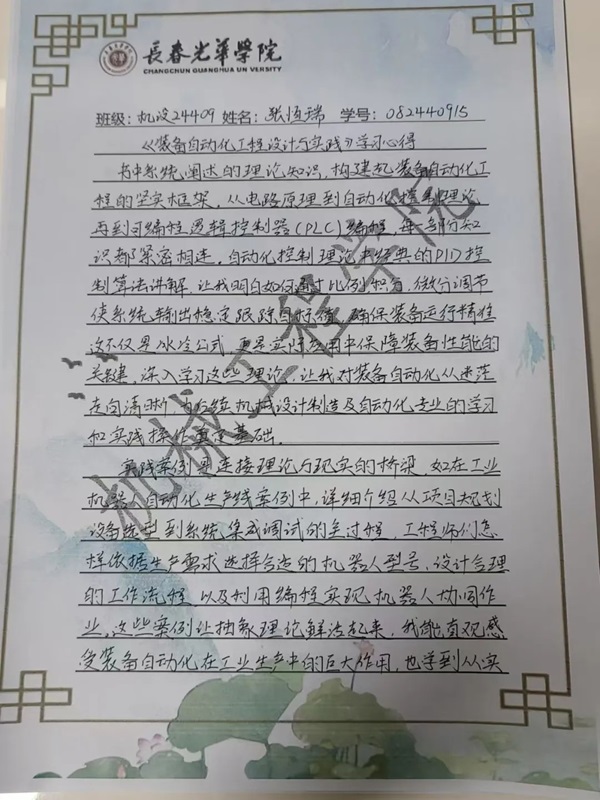 長春光華學院
CHANGCHUN GUANGHUA UNIVERSITY
班级:机设24409 姓名:张恆瑞 学号:082440915
《装备自动化工程设计与实践》学习心得
书中系统阐述的理论知识,构建起装备自动化工
程的坚实框架,从电路原理到自动化控制理论
再到可编程逻辑控制器(PLC)编程,每一部分知
识都紧密相连,自动化控制理论中经典的PID控
制算法讲解,让我明白如何通过比例积分,微分调节
使系统输出稳定跟踪目标值,确保装备运行精准
这不仅是冰冷公式,更是实际应用中保障装备性能的
关键,深入学习这些理论,让我对装备自动化从迷茫
走向清晰,为后续机械设计制造及自动化专业的学习
和实践操作奠定基础.
实践案例是连接理论与现实的桥梁,如在工业
机器人自动化生产线案例中,详细介绍从项目规划
设备选型到系统集成调试的全过程,工程师们怎
样依据生产需求选择合适的机器人型号,设计合理
的工作流程,以及利用编程实现机器人协同作
业,这些案例让抽象理论鲜活起来,我能直观感
受装备自动化在工业生产中的巨大作用,也学到从实
机械工程学院